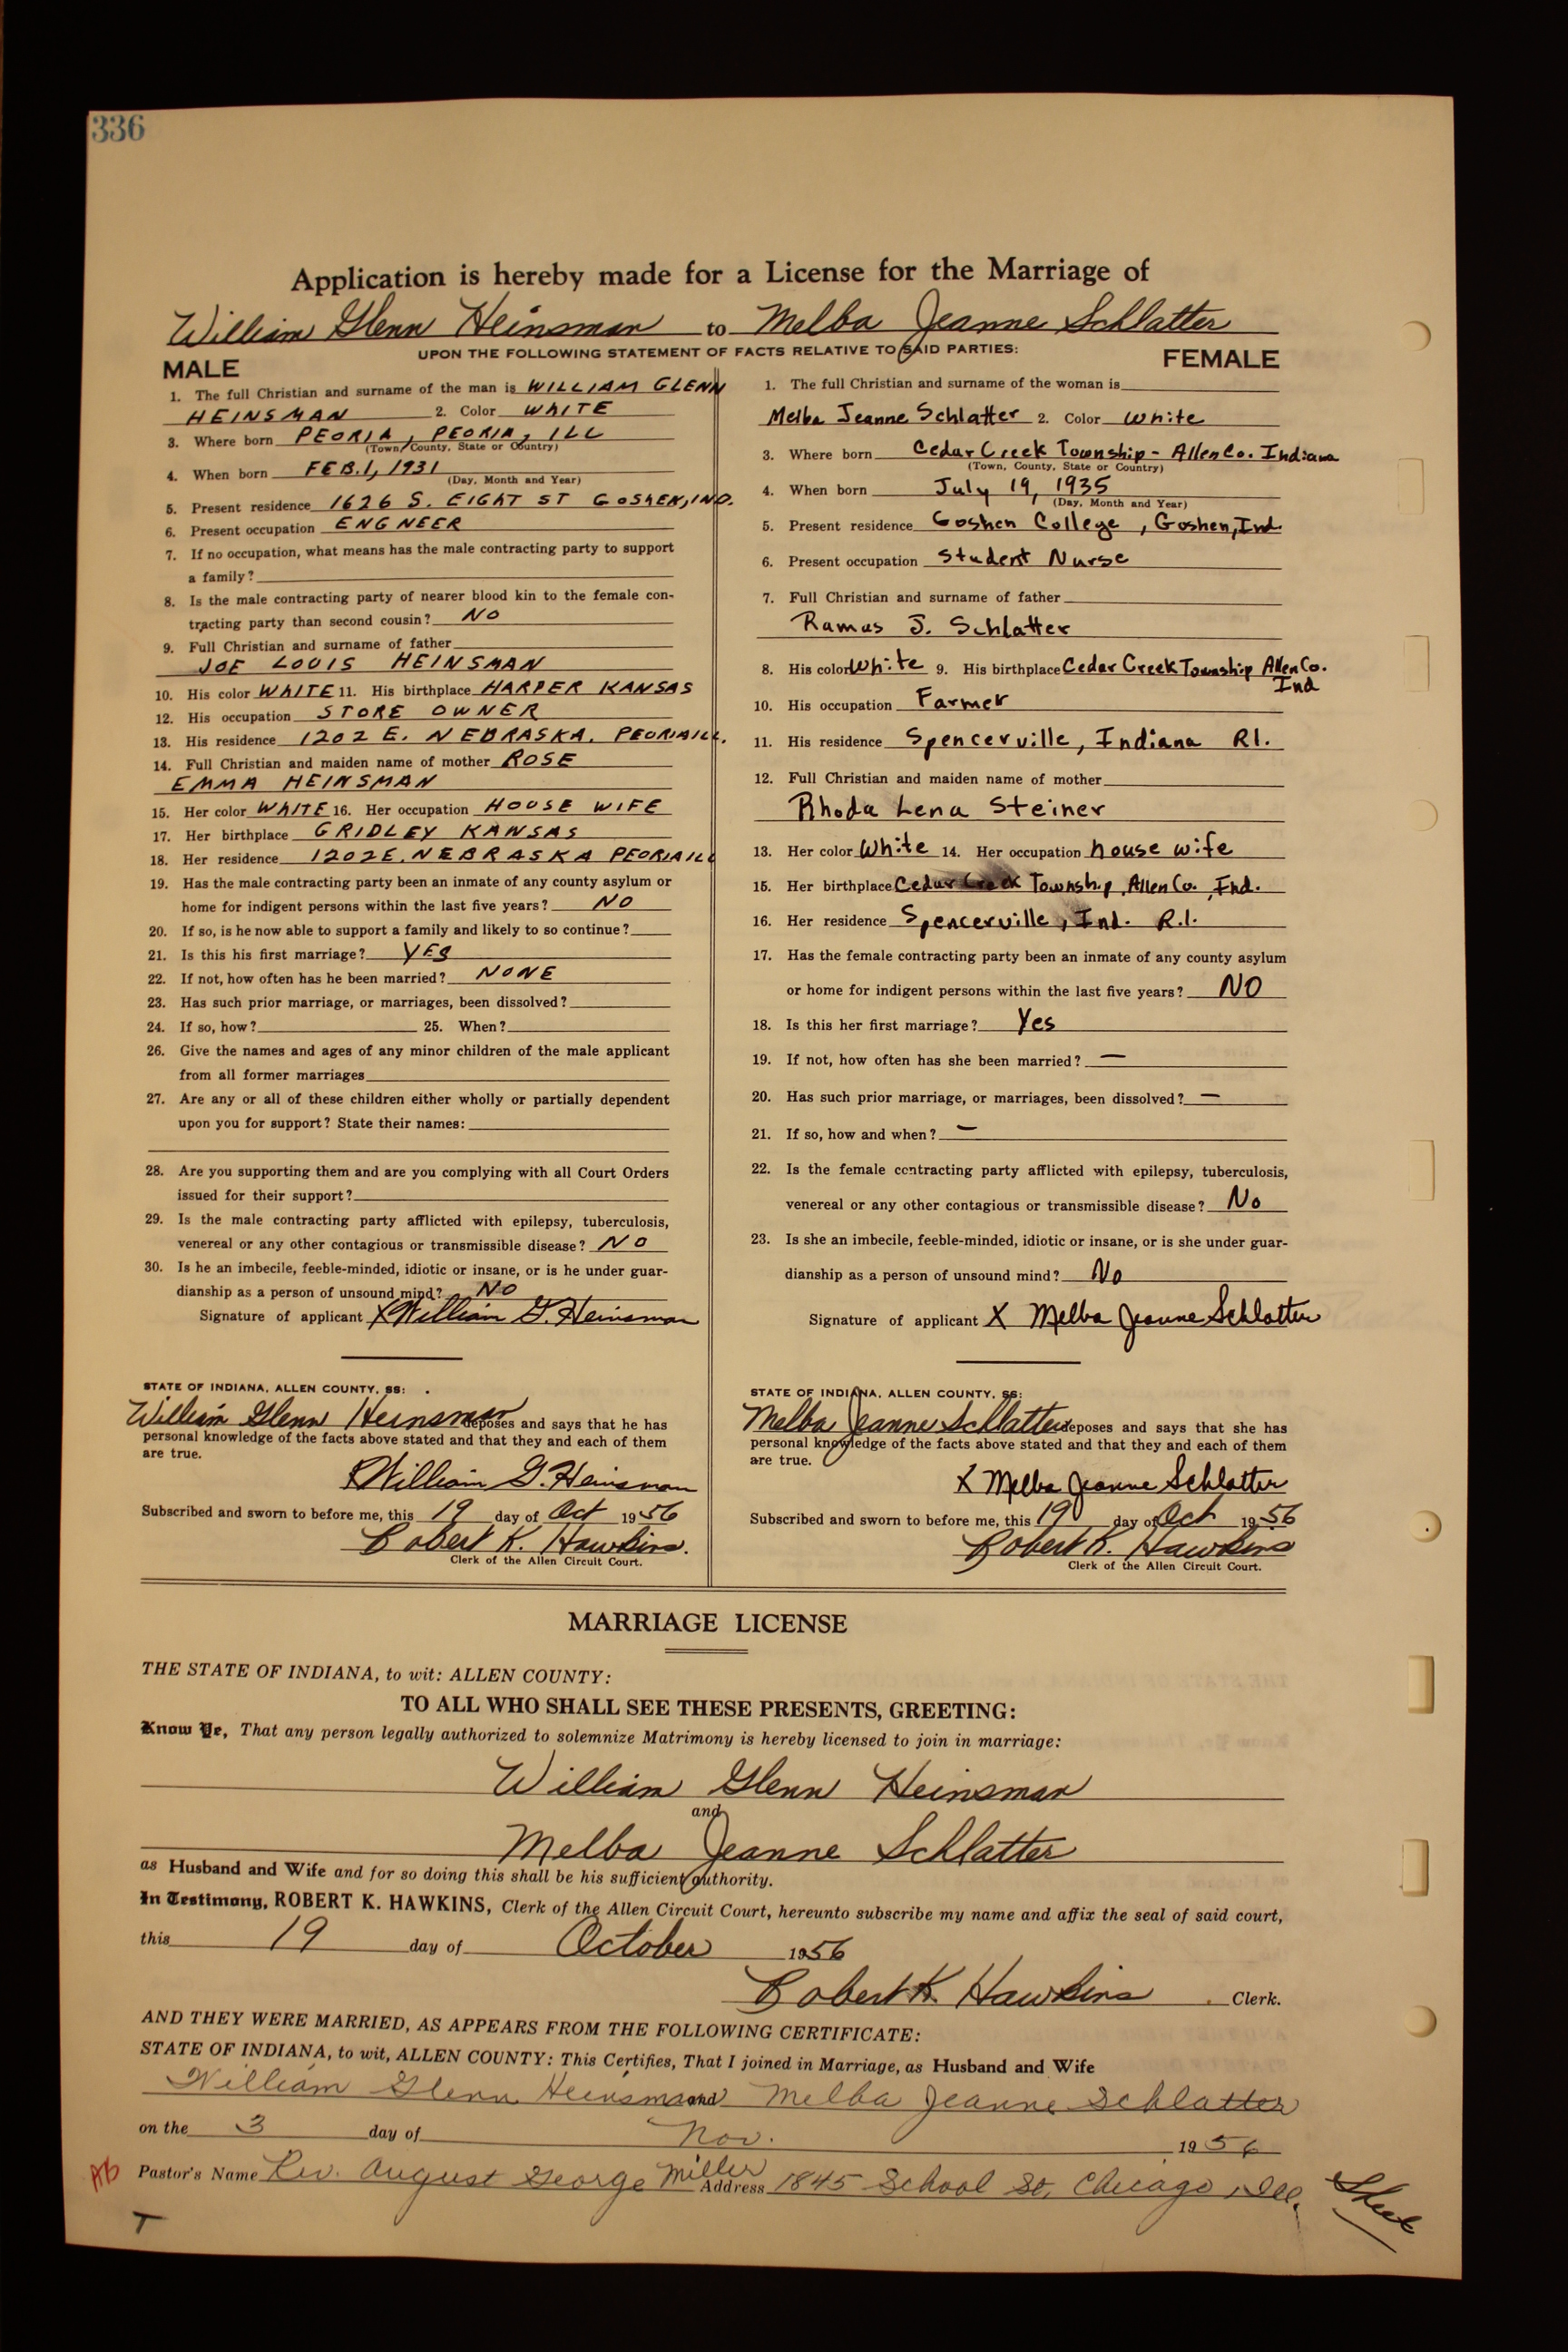 336
Application is hereby made for a License for the Marriage of
William Glenn Heinsman to Melba Jeanne Schlatter
UPON THE FOLLOWING STATEMENT OF FACTS RELATIVE TO SAID PARTIES:
MALE
1. The full Christian and surname of the man is WILLIAM GLENN
HEINSMAN 2. Color WHITE
3. Where born PEORIA, PEORIA, ILL
(Town, County, State or Country)
4. When born FEB. 1, 1931
(Day, Month and Year)
5. Present residence 1626 S. EIGHT ST GOSHEN, IND.
6. Present occupation ENGNEER
7. If no occupation, what means has the male contracting party to support
a family?
8. Is the male contracting party of nearer blood kin to the female con-
tracting party than second cousin? NO
9. Full Christian and surname of father
JOE LOUIS HEINSMAN
10. His color WHITE 11. His birthplace HARPER KANSAS
12. His occupation STORE OWNER
13. His residence 1202 E. NEBRASKA. PEORIA ILL.
14. Full Christian and maiden name of mother ROSE
EMMA HEINSMAN
15. Her color WHITE 16. Her occupation HOUSE WIFE
17. Her birthplace GRIDLEY KANSAS
18. Her residence 1202 E. NEBRASKA PEORIA ILL
19. Has the male contracting party been an inmate of any county asylum or
home for indigent persons within the last five years? NO
20. If so, is he now able to support a family and likely to so continue?
21. Is this his first marriage? YES
22. If not, how often has he been married? NONE
23. Has such prior marriage, or marriages, been dissolved?
24. If so, how? 25. When?
26. Give the names and ages of any minor children of the male applicant
from all former marriages
27. Are any or all of these children either wholly or partially dependent
upon you for support? State their names:
28. Are you supporting them and are you complying with all Court Orders
issued for their support?
29. Is the male contracting party afflicted with epilepsy, tuberculosis,
venereal or any other contagious or transmissible disease? NO
30. Is he an imbecile, feeble-minded, idiotic or insane, or is he under guar-
dianship as a person of unsound mind? NO
Signature of applicant X William G. Heinsman
STATE OF INDIANA, ALLEN COUNTY, SS:
William Glenn Heinsman deposes and says that he has
personal knowledge of the facts above stated and that they and each of them
are true.
X William G. Heinsman
Subscribed and sworn to before me, this 19 day of Oct 1956
Robert K. Hawkins.
Clerk of the Allen Circuit Court.
FEMALE
1. The full Christian and surname of the woman is
Melba Jeanne Schlatter 2. Color White
3. Where born Cedar Creek Township - Allen Co. Indiana
(Town, County, State or Country)
4. When born July 19, 1935
(Day, Month and Year)
5. Present residence Goshen College, Goshen, Ind.
6. Present occupation Student Nurse
7. Full Christian and surname of father
Ramus J. Schlatter
8. His color White 9. His birthplace Cedar Creek Township Allen Co.
Ind
10. His occupation Farmer
11. His residence Spencerville, Indiana R1.
12. Full Christian and maiden name of mother
Rhoda Lena Steiner
13. Her color White 14. Her occupation house wife
15. Her birthplace Cedar Creek Township, Allen Co., Ind.
16. Her residence Spencerville, Ind. R.1.
17. Has the female contracting party been an inmate of any county asylum
or home for indigent persons within the last five years? NO
18. Is this her first marriage? Yes
19. If not, how often has she been married? —
20. Has such prior marriage, or marriages, been dissolved? —
21. If so, how and when? —
22. Is the female contracting party afflicted with epilepsy, tuberculosis,
venereal or any other contagious or transmissible disease? No
23. Is she an imbecile, feeble-minded, idiotic or insane, or is she under guar-
dianship as a person of unsound mind? No
Signature of applicant X Melba Jeanne Schlatter
STATE OF INDIANA, ALLEN COUNTY, SS:
Melba Jeanne Schlatter deposes and says that she has
personal knowledge of the facts above stated and that they and each of them
are true.
X Melba Jeanne Schlatter
Subscribed and sworn to before me, this 19 day of Oct 1956
Robert K. Hawkins
Clerk of the Allen Circuit Court.
MARRIAGE LICENSE
THE STATE OF INDIANA, to wit: ALLEN COUNTY:
TO ALL WHO SHALL SEE THESE PRESENTS, GREETING:
Know Ye, That any person legally authorized to solemnize Matrimony is hereby licensed to join in marriage:
William Glenn Heinsman
and
Melba Jeanne Schlatter
as Husband and Wife and for so doing this shall be his sufficient authority.
In Testimony, ROBERT K. HAWKINS, Clerk of the Allen Circuit Court, hereunto subscribe my name and affix the seal of said court,
this 19 day of October 1956
Robert K. Hawkins Clerk.
AND THEY WERE MARRIED, AS APPEARS FROM THE FOLLOWING CERTIFICATE:
STATE OF INDIANA, to wit, ALLEN COUNTY: This Certifies, That I joined in Marriage, as Husband and Wife
William Glenn Heinsman and Melba Jeanne Schlatter
on the 3 day of Nov. 1956
AB Pastor's Name Rev. August George Miller Address 1845 School St, Chicago, Ill.
T